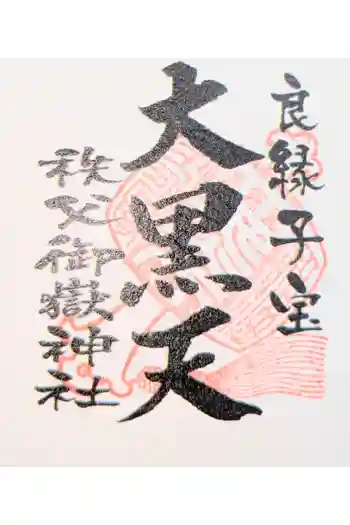 良縁子宝
大黒天
秩父御嶽神社